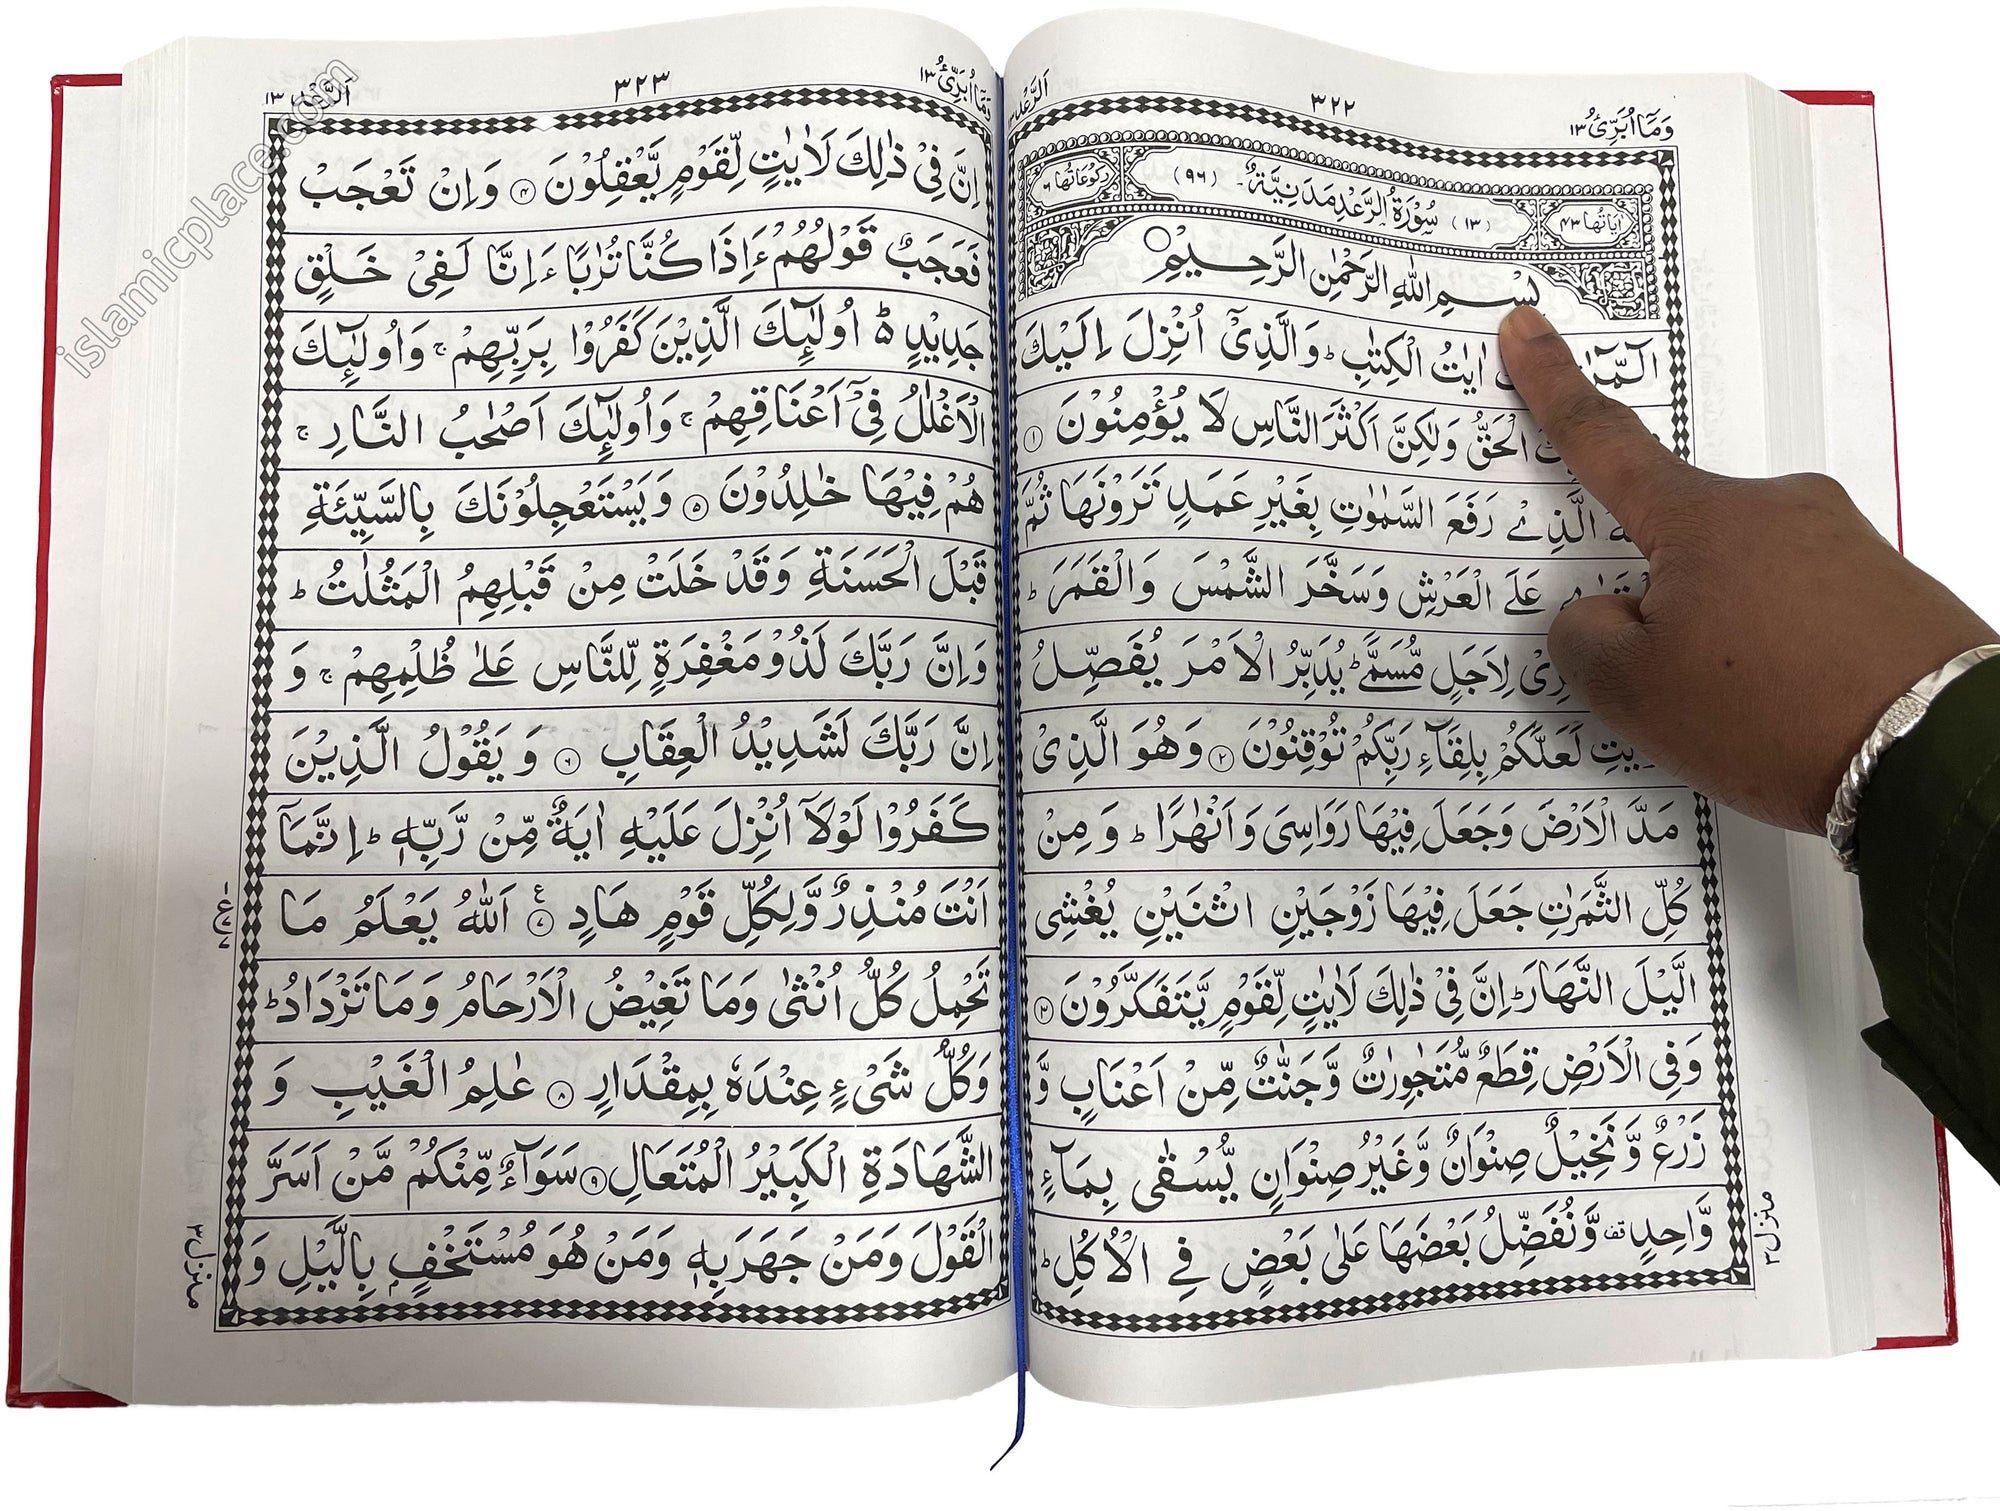 وَمَآ اُبَرِّئُ ١٣
٣٢٢
اَلرَّعْد ١٣
اٰیَاتُهَا ٤٣
(١٣) سُوْرَةُ الرَّعْدِ مَدَنِیَّةٌ (٩٦)
رُكُوْعَاتُهَا ٦
بِسْمِ اللّٰهِ الرَّحْمٰنِ الرَّحِیْمِ
الٓمّٓرٰ اٰیٰتُ الْكِتٰبِ ؕ وَالَّذِیْۤ اُنْزِلَ اِلَیْكَ
الْحَقُّ وَلٰكِنَّ اَكْثَرَ النَّاسِ لَا یُؤْمِنُوْنَ ١
الَّذِیْ رَفَعَ السَّمٰوٰتِ بِغَیْرِ عَمَدٍ تَرَوْنَهَا ثُمَّ
عَلَی الْعَرْشِ وَسَخَّرَ الشَّمْسَ وَالْقَمَرَ ؕ
لِاَجَلٍ مُّسَمًّی ؕ یُدَبِّرُ الْاَمْرَ یُفَصِّلُ
لَعَلَّكُمْ بِلِقَآءِ رَبِّكُمْ تُوْقِنُوْنَ ٢ وَهُوَ الَّذِیْ
مَدَّ الْاَرْضَ وَجَعَلَ فِیْهَا رَوَاسِیَ وَاَنْهٰرًا ؕ وَمِنْ
كُلِّ الثَّمَرٰتِ جَعَلَ فِیْهَا زَوْجَیْنِ اثْنَیْنِ یُغْشِی
الَّیْلَ النَّهَارَ ؕ اِنَّ فِیْ ذٰلِكَ لَاٰیٰتٍ لِّقَوْمٍ یَّتَفَكَّرُوْنَ ٣
وَفِی الْاَرْضِ قِطَعٌ مُّتَجٰوِرٰتٌ وَّجَنّٰتٌ مِّنْ اَعْنَابٍ وَّ
زَرْعٌ وَّنَخِیْلٌ صِنْوَانٌ وَّغَیْرُ صِنْوَانٍ یُّسْقٰی بِمَآءٍ
وَّاحِدٍ قف وَّنُفَضِّلُ بَعْضَهَا عَلٰی بَعْضٍ فِی الْاُكُلِ ؕ
منزل ٣
وَمَآ اُبَرِّئُ ١٣
٣٢٣
اَلرَّعْد ١٣
اِنَّ فِیْ ذٰلِكَ لَاٰیٰتٍ لِّقَوْمٍ یَّعْقِلُوْنَ ٤ وَاِنْ تَعْجَبْ
فَعَجَبٌ قَوْلُهُمْ ءَاِذَا كُنَّا تُرٰبًا ءَاِنَّا لَفِیْ خَلْقٍ
جَدِیْدٍ ؕ۬ اُولٰٓئِكَ الَّذِیْنَ كَفَرُوْا بِرَبِّهِمْ ۚ وَاُولٰٓئِكَ
الْاَغْلٰلُ فِیْۤ اَعْنَاقِهِمْ ۚ وَاُولٰٓئِكَ اَصْحٰبُ النَّارِ ۚ
هُمْ فِیْهَا خٰلِدُوْنَ ٥ وَیَسْتَعْجِلُوْنَكَ بِالسَّیِّئَةِ
قَبْلَ الْحَسَنَةِ وَقَدْ خَلَتْ مِنْ قَبْلِهِمُ الْمَثُلٰتُ ؕ
وَاِنَّ رَبَّكَ لَذُوْ مَغْفِرَةٍ لِّلنَّاسِ عَلٰی ظُلْمِهِمْ ۚ وَ
اِنَّ رَبَّكَ لَشَدِیْدُ الْعِقَابِ ٦ وَیَقُوْلُ الَّذِیْنَ
كَفَرُوْا لَوْلَاۤ اُنْزِلَ عَلَیْهِ اٰیَةٌ مِّنْ رَّبِّهٖ ؕ اِنَّمَاۤ
اَنْتَ مُنْذِرٌ وَّلِكُلِّ قَوْمٍ هَادٍ ٧ اَللّٰهُ یَعْلَمُ مَا
تَحْمِلُ كُلُّ اُنْثٰی وَمَا تَغِیْضُ الْاَرْحَامُ وَمَا تَزْدَادُ ؕ
وَكُلُّ شَیْءٍ عِنْدَهٗ بِمِقْدَارٍ ٨ عٰلِمُ الْغَیْبِ وَ
الشَّهَادَةِ الْكَبِیْرُ الْمُتَعَالِ ٩ سَوَآءٌ مِّنْكُمْ مَّنْ اَسَرَّ
الْقَوْلَ وَمَنْ جَهَرَ بِهٖ وَمَنْ هُوَ مُسْتَخْفٍۭ بِالَّیْلِ وَ
منزل ٣
islamicplace.com